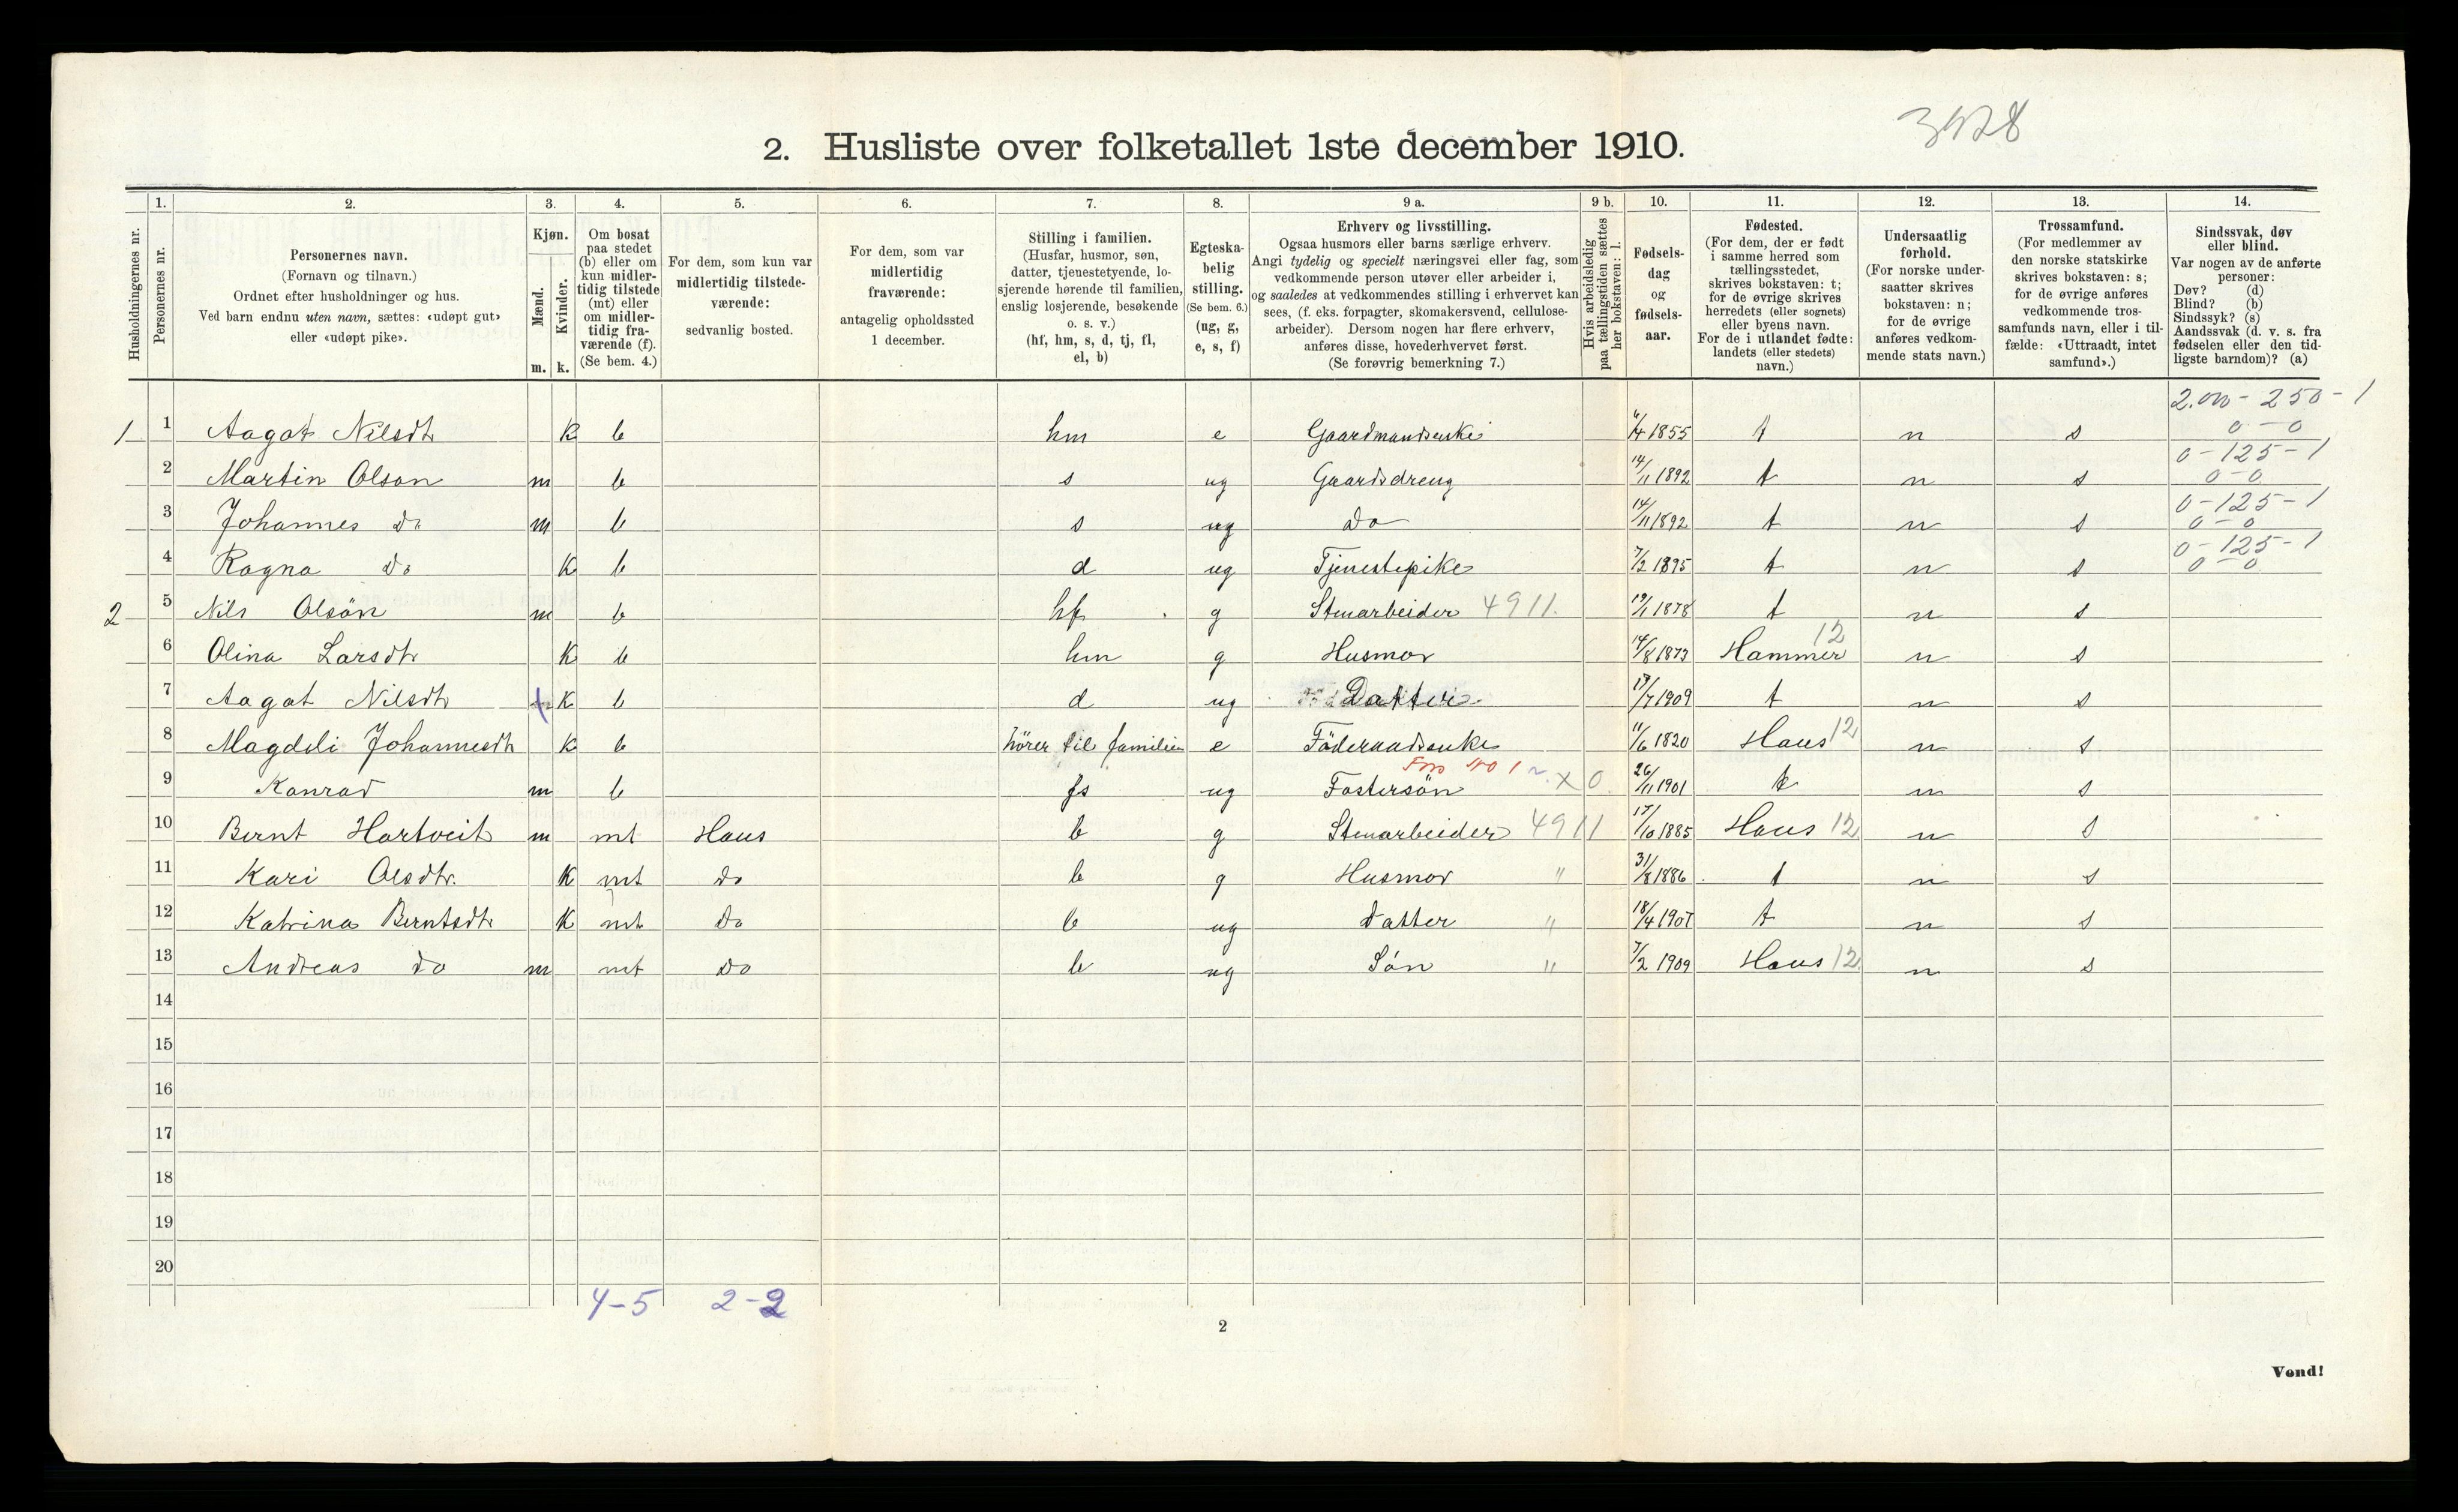 3528
2. Husliste over folketallet 1ste december 1910.
Husholdningernes nr.
1. Personernes nr.
2. Personernes navn. (Fornavn og tilnavn.) Ordnet efter husholdninger og hus. Ved barn endnu uten navn, sættes: «udøpt gut» eller «udøpt pike».
3. Kjøn. Mænd. m. Kvinder. k.
4. Om bosat paa stedet (b) eller om kun midlertidig tilstede (mt) eller om midlertidig fraværende (f). (Se bem. 4.)
5. For dem, som kun var midlertidig tilstedeværende: sedvanlig bosted.
6. For dem, som var midlertidig fraværende: antagelig opholdssted 1 december.
7. Stilling i familien. (Husfar, husmor, søn, datter, tjenestetyende, losjerende hørende til familien, enslig losjerende, besøkende o. s. v.) (hf, hm, s, d, tj, fl, el, b)
8. Egteskabelig stilling. (Se bem. 6.) (ug, g, e, s, f)
9 a. Erhverv og livsstilling. Ogsaa husmors eller barns særlige erhverv. Angi tydelig og specielt næringsvei eller fag, som vedkommende person utøver eller arbeider i, og saaledes at vedkommendes stilling i erhvervet kan sees, (f. eks. forpagter, skomakersvend, cellulosearbeider). Dersom nogen har flere erhverv, anføres disse, hovederhvervet først. (Se forøvrig bemerkning 7.)
9 b. Hvis arbeidsledig paa tællingstiden sættes her bokstaven: l.
10. Fødselsdag og fødselsaar.
11. Fødested. (For dem, der er født i samme herred som tællingsstedet, skrives bokstaven: t; for de øvrige skrives herredets (eller sognets) eller byens navn. For de i utlandet fødte: landets (eller stedets) navn.)
12. Undersaatlig forhold. (For norske undersaatter skrives bokstaven: n; for de øvrige anføres vedkommende stats navn.)
13. Trossamfund. (For medlemmer av den norske statskirke skrives bokstaven: s; for de øvrige anføres vedkommende trossamfunds navn, eller i tilfælde: «Uttraadt, intet samfund».)
14. Sindssvak, døv eller blind. Var nogen av de anførte personer: Døv? (d) Blind? (b) Sindssyk? (s) Aandssvak (d. v. s. fra fødselen eller den tidligste barndom)? (a)
1 1 Aagot Nilsdtr K b hm e Gaardmandsenke 6/4 1855 t n s 2.00 - 250 - 1 0 - 0
2 Martin Olson m b s ug Gaardsdreng 14/11 1892 t n s 0 - 125 - 1 0 - 0
3 Johannes do m b s ug do 14/11 1892 t n s 0 - 125 - 1 0 - 0
4 Ragna do K b d ug Tjenestepike 7/2 1895 t n s 0 - 125 - 1 0 - 0
2 5 Nils Olsön m b hf g Stenarbeider 4911. 19/1 1878 t n s
6 Olina Larsdtr K b hm g Husmor 14/8 1873 Hammer 12 n s
7 Aagot Nilsdtr K b d ug Datter 19/7 1909 t n s
8 Magdeli Johannesdtr K b hører til familien e Föderaadsenke 11/6 1820 Haus 12 n s
9 Konrad m b fs ug Fostersön x 0 26/11 1901 t n s
10 Bernt Hartveit m mt Haus b g Stenarbeider 4911 17/10 1885 Haus 12 n s
11 Kari Olsdtr. K mt do b g Husmor " 31/8 1886 t n s
12 Katrina Berntsdtr K mt do b ug Datter " 18/4 1907 t n s
13 Andreas do m mt do b ug Sön " 7/2 1909 Haus 12 n s
14
15
16
17
18
19
20
4-5 2-2
2
Vend!